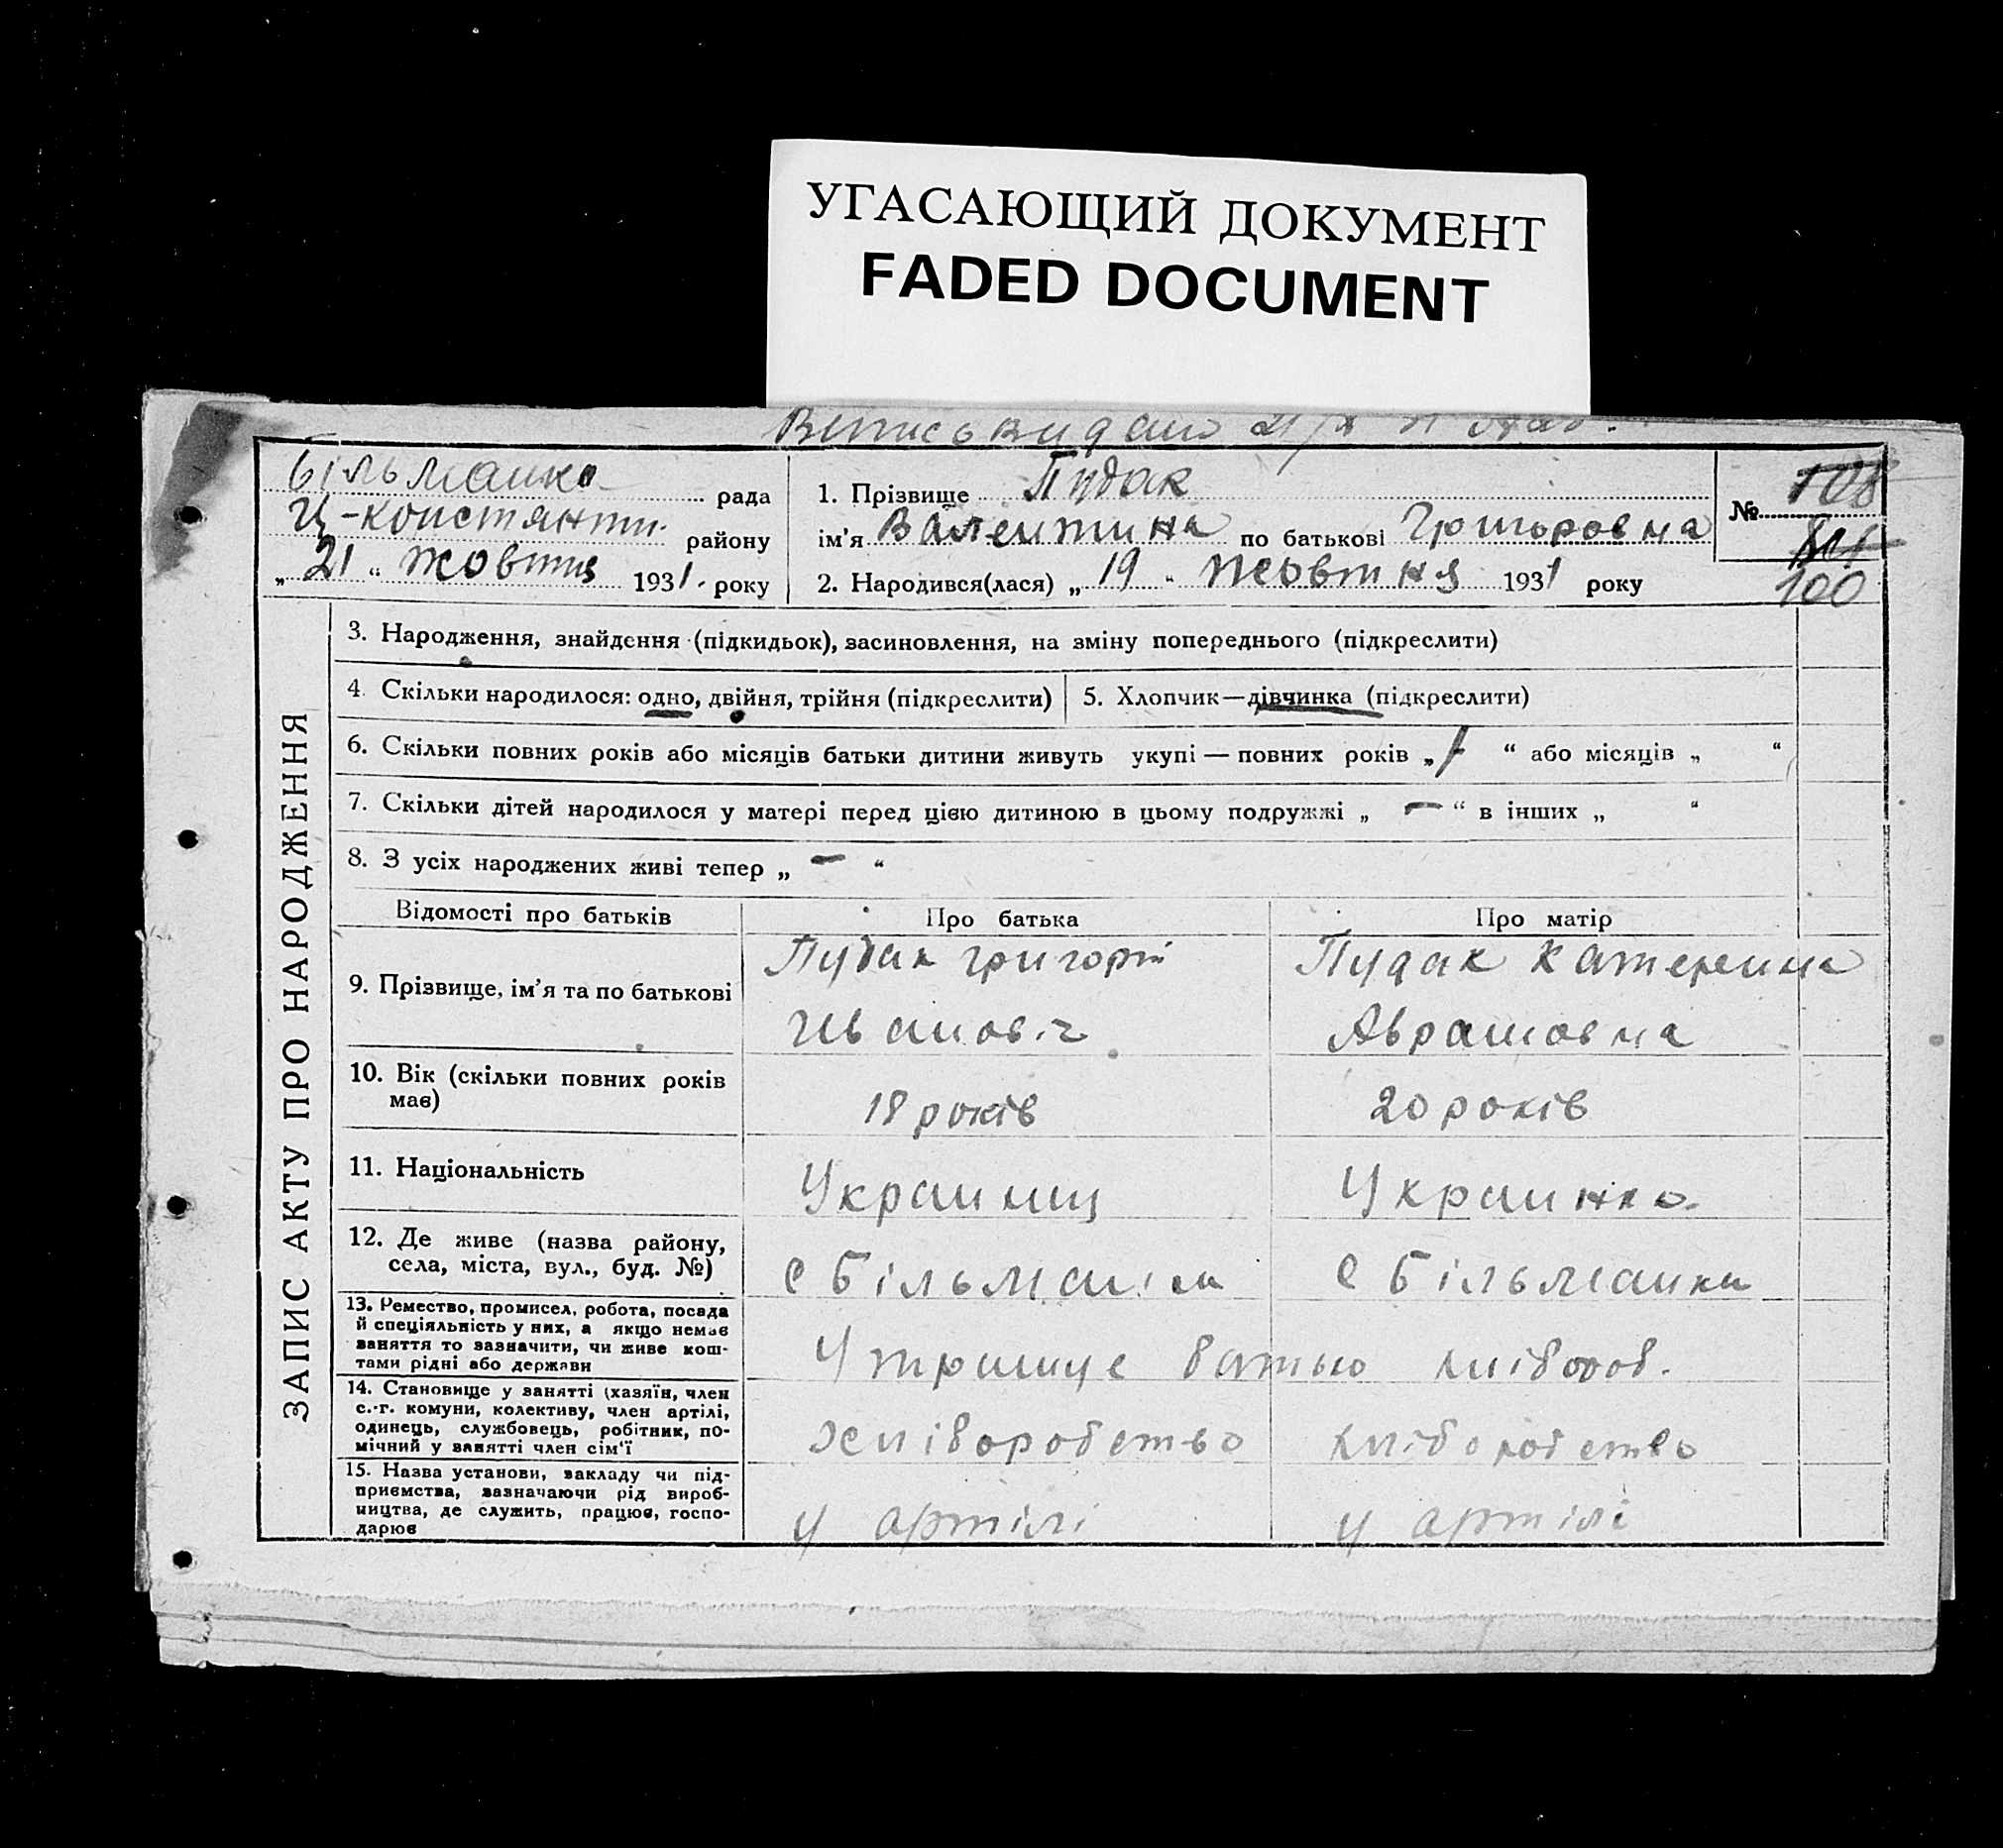 УГАСАЮЩИЙ ДОКУМЕНТ
FADED DOCUMENT
Більманка рада
Ц-Констянти. району
„21“ жовтня 1931. року
1. Прізвище Пудак
ім’я Валентина по батькові Григоровна
2. Народився(лася) „19“ жовтня 1931 року
№ 108
100
ЗАПИС АКТУ ПРО НАРОДЖЕННЯ
3. Народження, знайдення (підкидьок), засиновлення, на зміну попереднього (підкреслити)
4. Скільки народилося: одно, двійня, трійня (підкреслити)
5. Хлопчик—дівчинка (підкреслити)
6. Скільки повних років або місяців батьки дитини живуть укупі — повних років „1“ або місяців „ “
7. Скільки дітей народилося у матері перед цією дитиною в цьому подружжі „ — “ в інших „ “
8. З усіх народжених живі тепер „ — “
Відомості про батьків
Про батька
Про матір
9. Прізвище, ім’я та по батькові
Пудак Григорій
Иванович
Пудак Катерина
Аврамовна
10. Вік (скільки повних років
має)
18 років
20 років
11. Національність
Украинц
Украинка
12. Де живе (назва району,
села, міста, вул., буд. №)
с Більманка
с Більманки
13. Ремество, промисел, робота, посада
й спеціяльність у них, а якщо немає
заняття то зазначити, чи живе кош-
тами рідні або держави
хлібороб.
14. Становище у занятті (хазяїн, член
с.-г. комуни, колективу, член артілі,
одинець, службовець, робітник, по-
мічний у занятті член сім’ї
хліборобство
хліборобство
15. Назва установи, закладу чи під-
приємства, зазначаючи рід вироб-
ництва, де служить, працює, госпо-
дарює
у артілі
у артілі